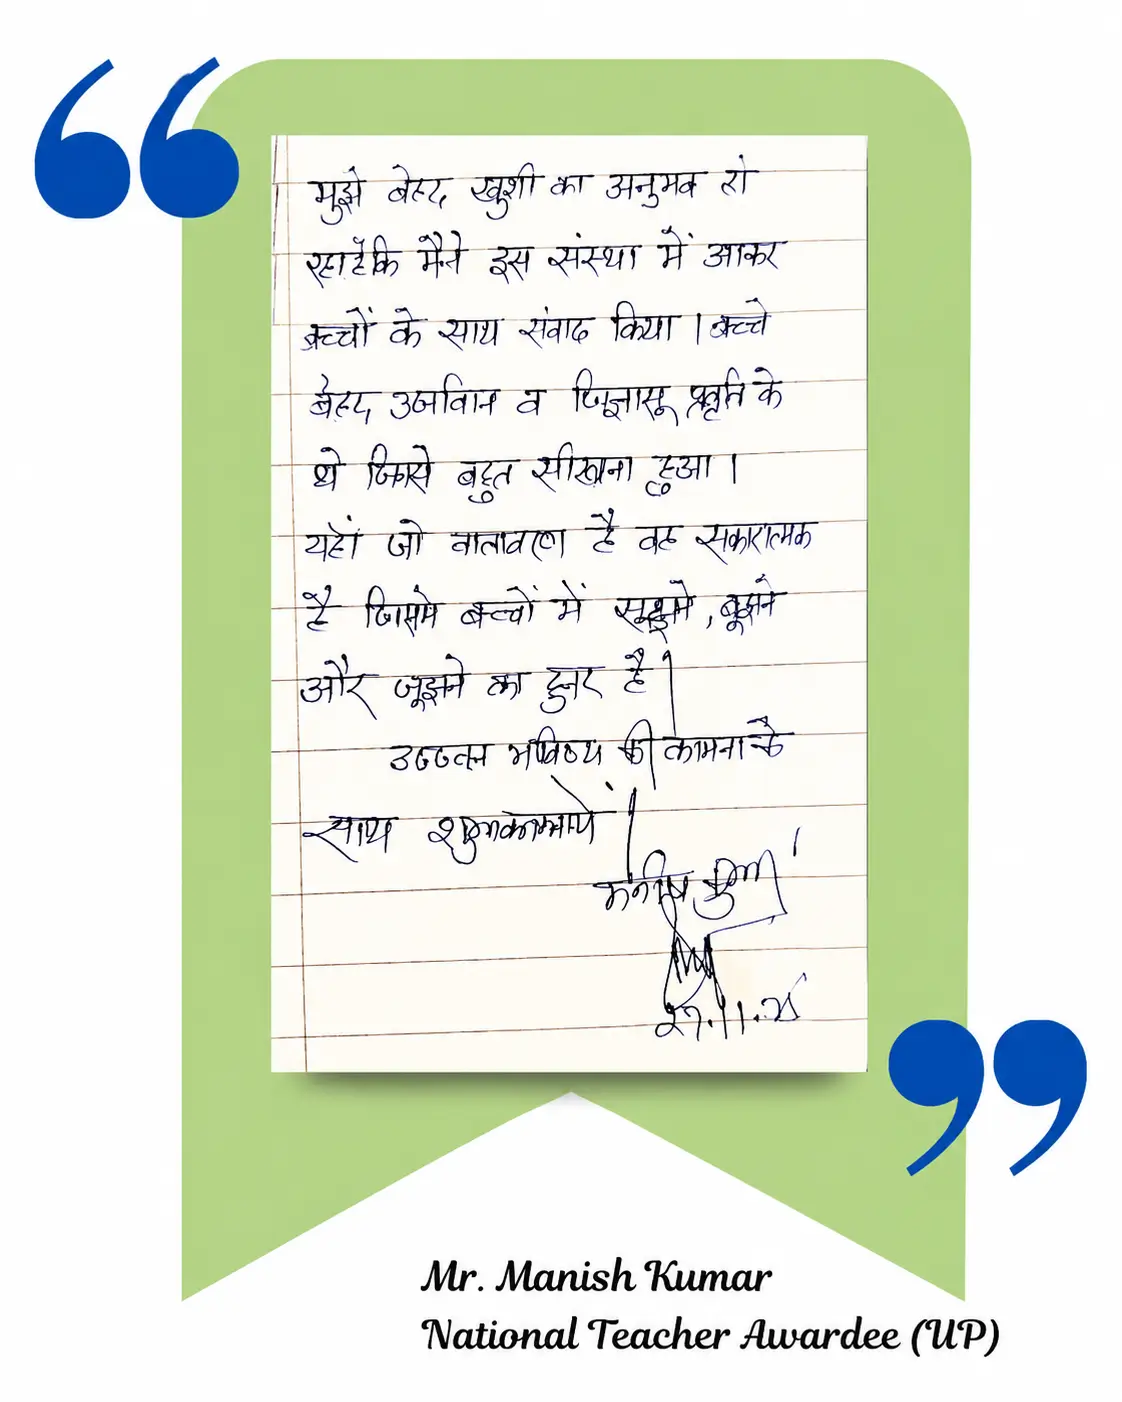 मुझे बेहद खुशी का अनुभव हो
रहा है कि मैंने इस संस्था में आकर
बच्चों के साथ संवाद किया । बच्चे
बेहद उर्जावान व जिज्ञासू प्रवृति के
थे जिनसे बहुत सीखना हुआ ।
यहाँ जो वातावरण है वह सकारात्मक
है जिसमे बच्चों में सूझने, बूझने
और जूझने का हुनर है ।
उज्जवल भविष्य की कामना के
साथ शुभकामनायें ।
मनीष कुमार
27.11.25
Mr. Manish Kumar
National Teacher Awardee (UP)